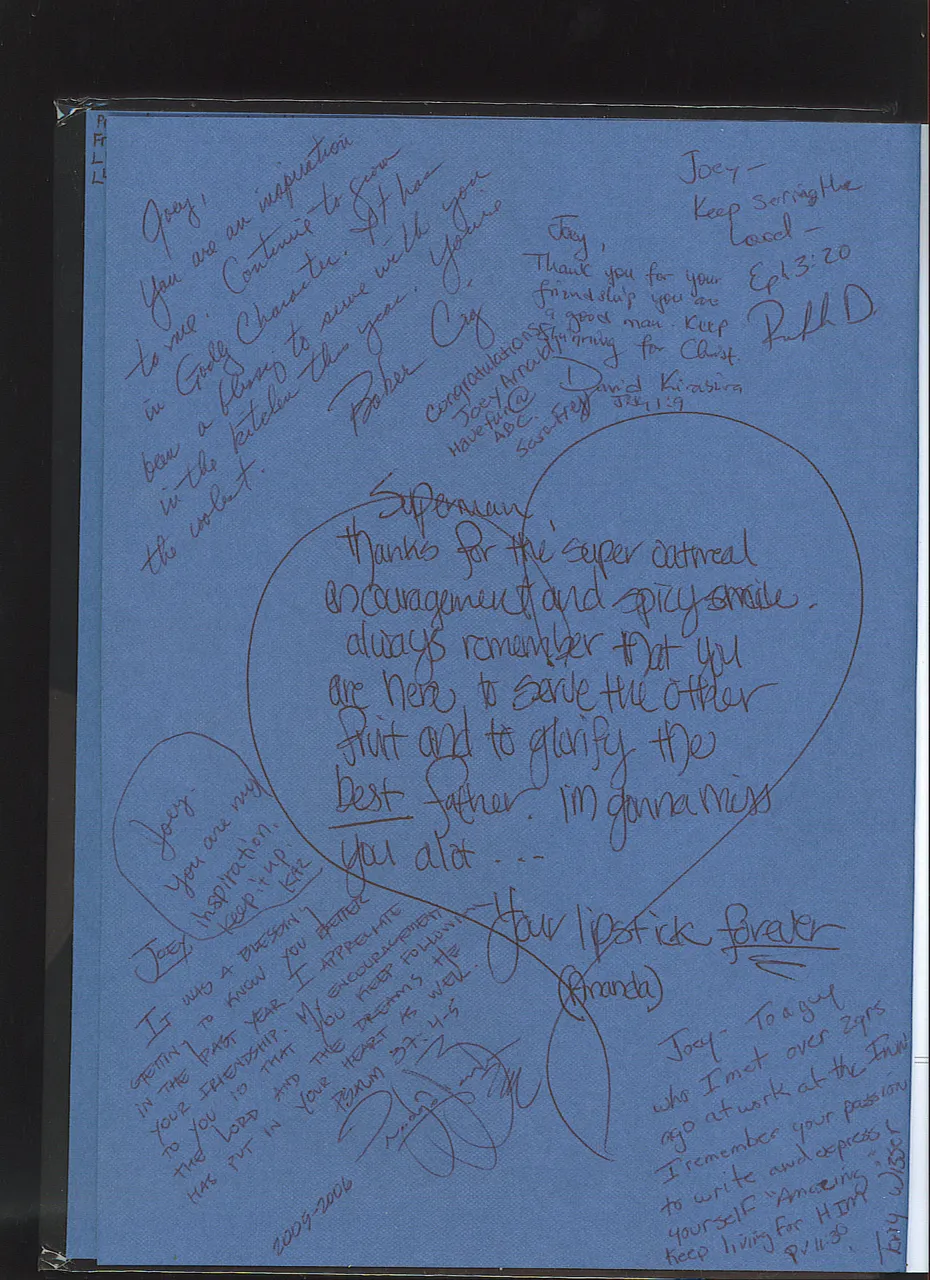 Joey,
You are an inspiration
to me. Continue to grow
in Godly Character. It has
been a blessing to serve with you
in the kitchen this year. You're
the coolest.
Joey—
Keep serving the
Lord—
Eph 3:20
Joey,
Thank you for your
friendship you are
a good man. Keep
shinning for Christ.
David Kirabira
1:9
Congratulations
Joey Arnold!
Have fun @
ABC
Sara Frey
Superman,
thanks for the super oatmeal
encouragement and spicy smile.
always remember that you
are here to serve the other
fruit and to glorify the
best father. I'm gonna miss
you alot ...
Your lipstick forever
(Amanda)
Joey-
you are my
inspiration.
keep it up.
Joey,
It was a blessing
getting to know you better
in the past year. I appreciate
your friendship. My encouragement
to you is that you keep following
the Lord and the dreams He
has put in your heart as well.
Psalm 37:4-5
2005-2006
Joey- To a guy
who I met over 2yrs
ago at work at the Inn.
I remember your passion
to write and express
yourself "Amazing"
Keep living for HIM!
Pv 11:30